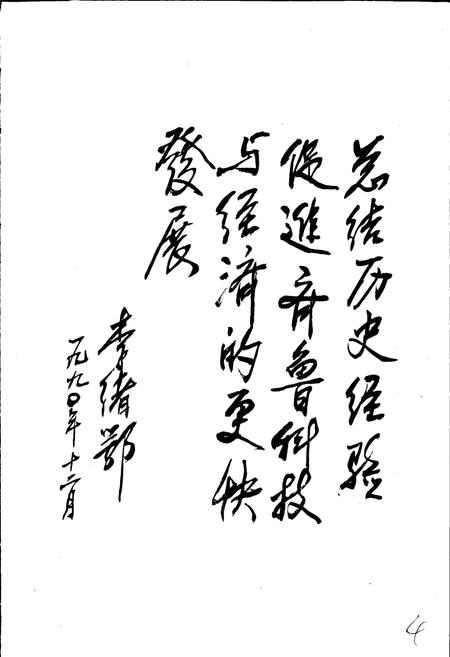 总结历史经验
促進齐鲁科技
与经济的更快
發展
李绪鄂
一九九〇年十二月
4